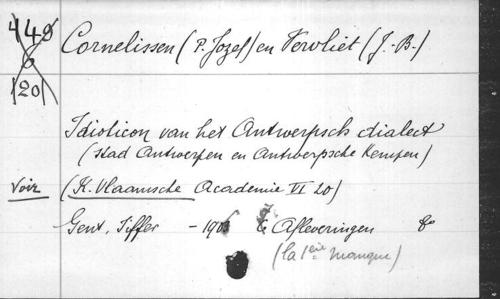 448
6
120
Cornelissen (P. Jozef) en Vervliet (J.-B.)
Idioticon van het Antwerpsch dialect
(stad Antwerpen en Antwerpsche Kempen)
Voir (K. Vlaamsche Academie VI 20)
Gent, Siffer - 190 Afleveringen 8°
(la 1ère manque)